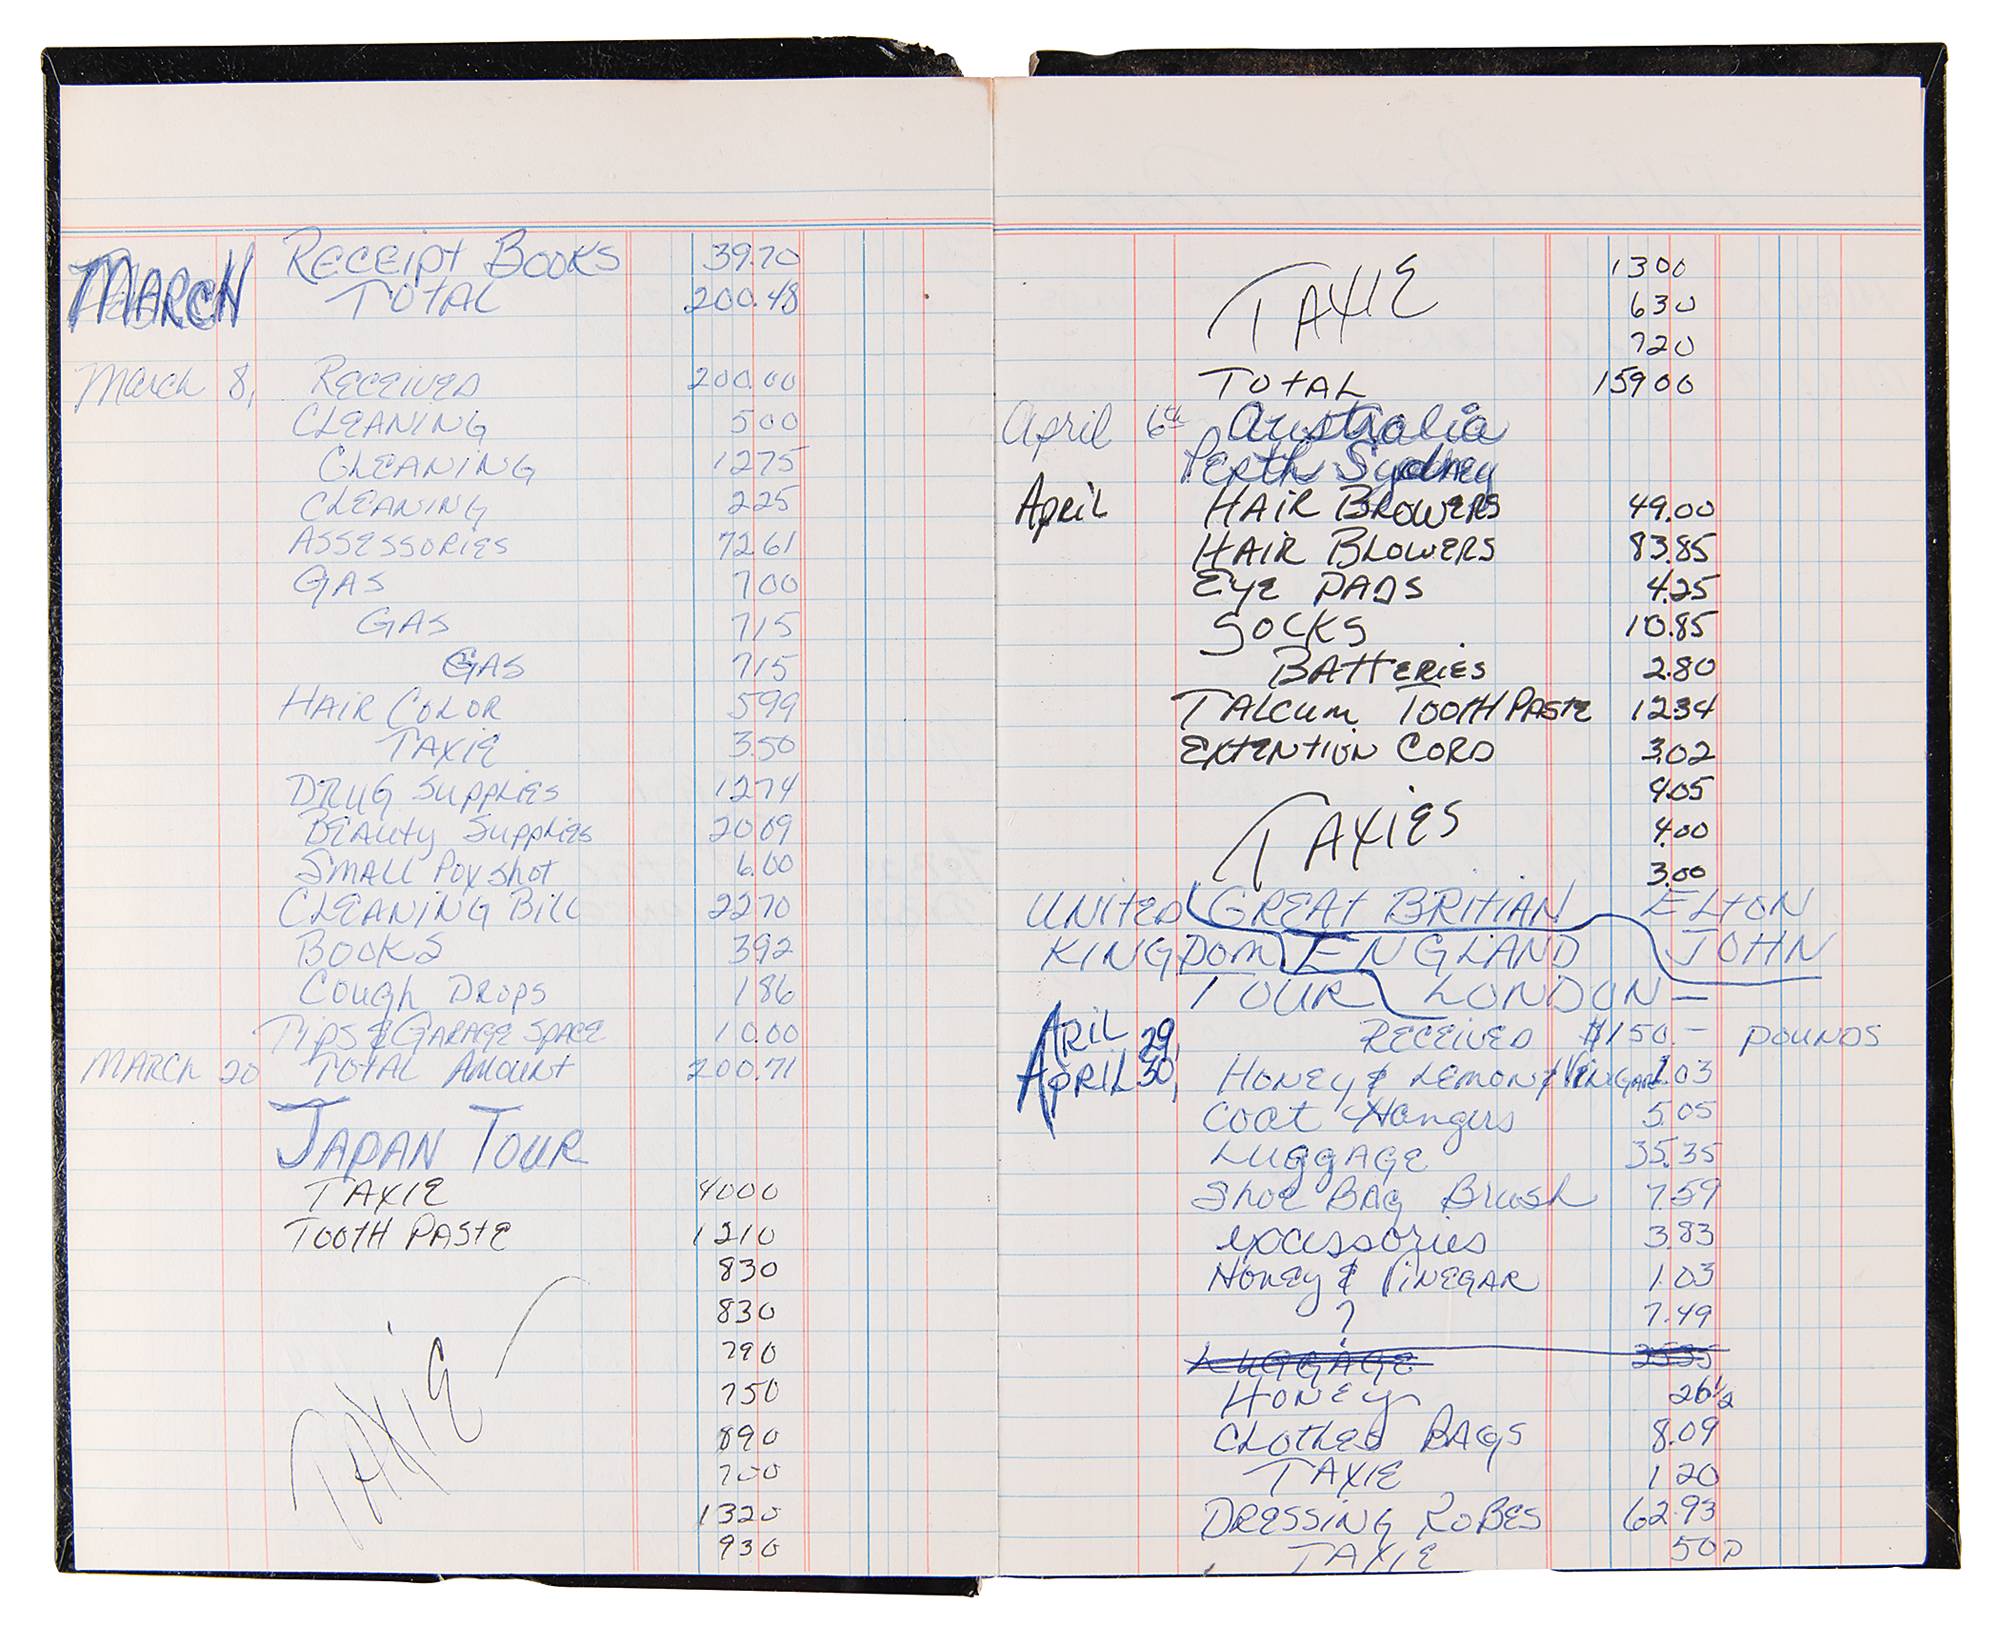 MARCH RECEIPT BOOKS 39.70
TOTAL 200.48
March 8, RECEIVED 200.00
CLEANING 500
CLEANING 1275
CLEANING 225
ASSESSORIES 7261
GAS 700
GAS 715
GAS 715
HAIR COLOR 599
TAXIE 3.50
DRUG SUPPLIES 1274
BEAUTY SUPPLIES 2009
SMALL POX SHOT 6.00
CLEANING BILL 2270
BOOKS 392
COUGH DROPS 186
TIPS & GARAGE SPACE 10.00
MARCH 20 TOTAL AMOUNT 200.71
JAPAN TOUR
TAXIE 4000
TOOTH PASTE 1210
830
830
790
TAXIE 750
890
700
1320
930
1300
TAXIE 630
720
TOTAL 15900
April 6th Australia
PERTH Sydney
APRIL HAIR BROWERS 49.00
HAIR BLOWERS 83.85
EYE PADS 4.25
SOCKS 10.85
BATTERIES 2.80
TALCUM TOOTH PASTE 1234
EXTENTION CORD 3.02
4.05
TAXIES 4.00
3.00
UNITED GREAT BRITIAN ELTON
KINGDOM ENGLAND JOHN
TOUR LONDON —
ARIL 29, RECEIVED $150.- POUNDS
APRIL 30, HONEY & LEMON & VINGAR 1.03
Coat Hangers 5.05
LUGGAGE 35.35
Shoe BAG Brush 7.59
excessories 3.83
HONEY & VINEGAR 1.03
? 7.49
LUGGAGE 3535
HONEY 26½
CLOTHES BAGS 8.09
TAXIE 1.20
DRESSING ROBES 62.93
TAXIE 50P